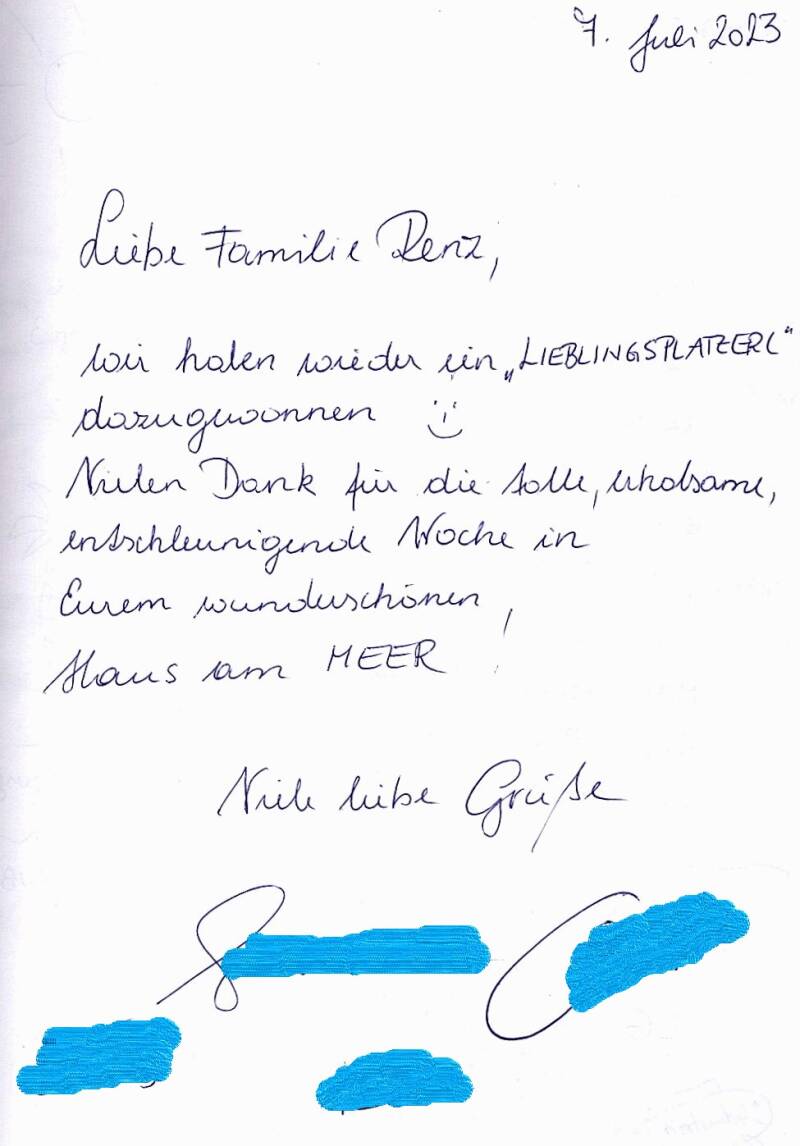 7. Juli 2023
Liebe Familie Renz,
wir haben wieder ein „LIEBLINGSPLATZERL“
dazugewonnen
Vielen Dank für die tolle, erholsame,
entschleunigende Woche in
Eurem wunderschönen
Haus am MEER !
Viele liebe Grüße